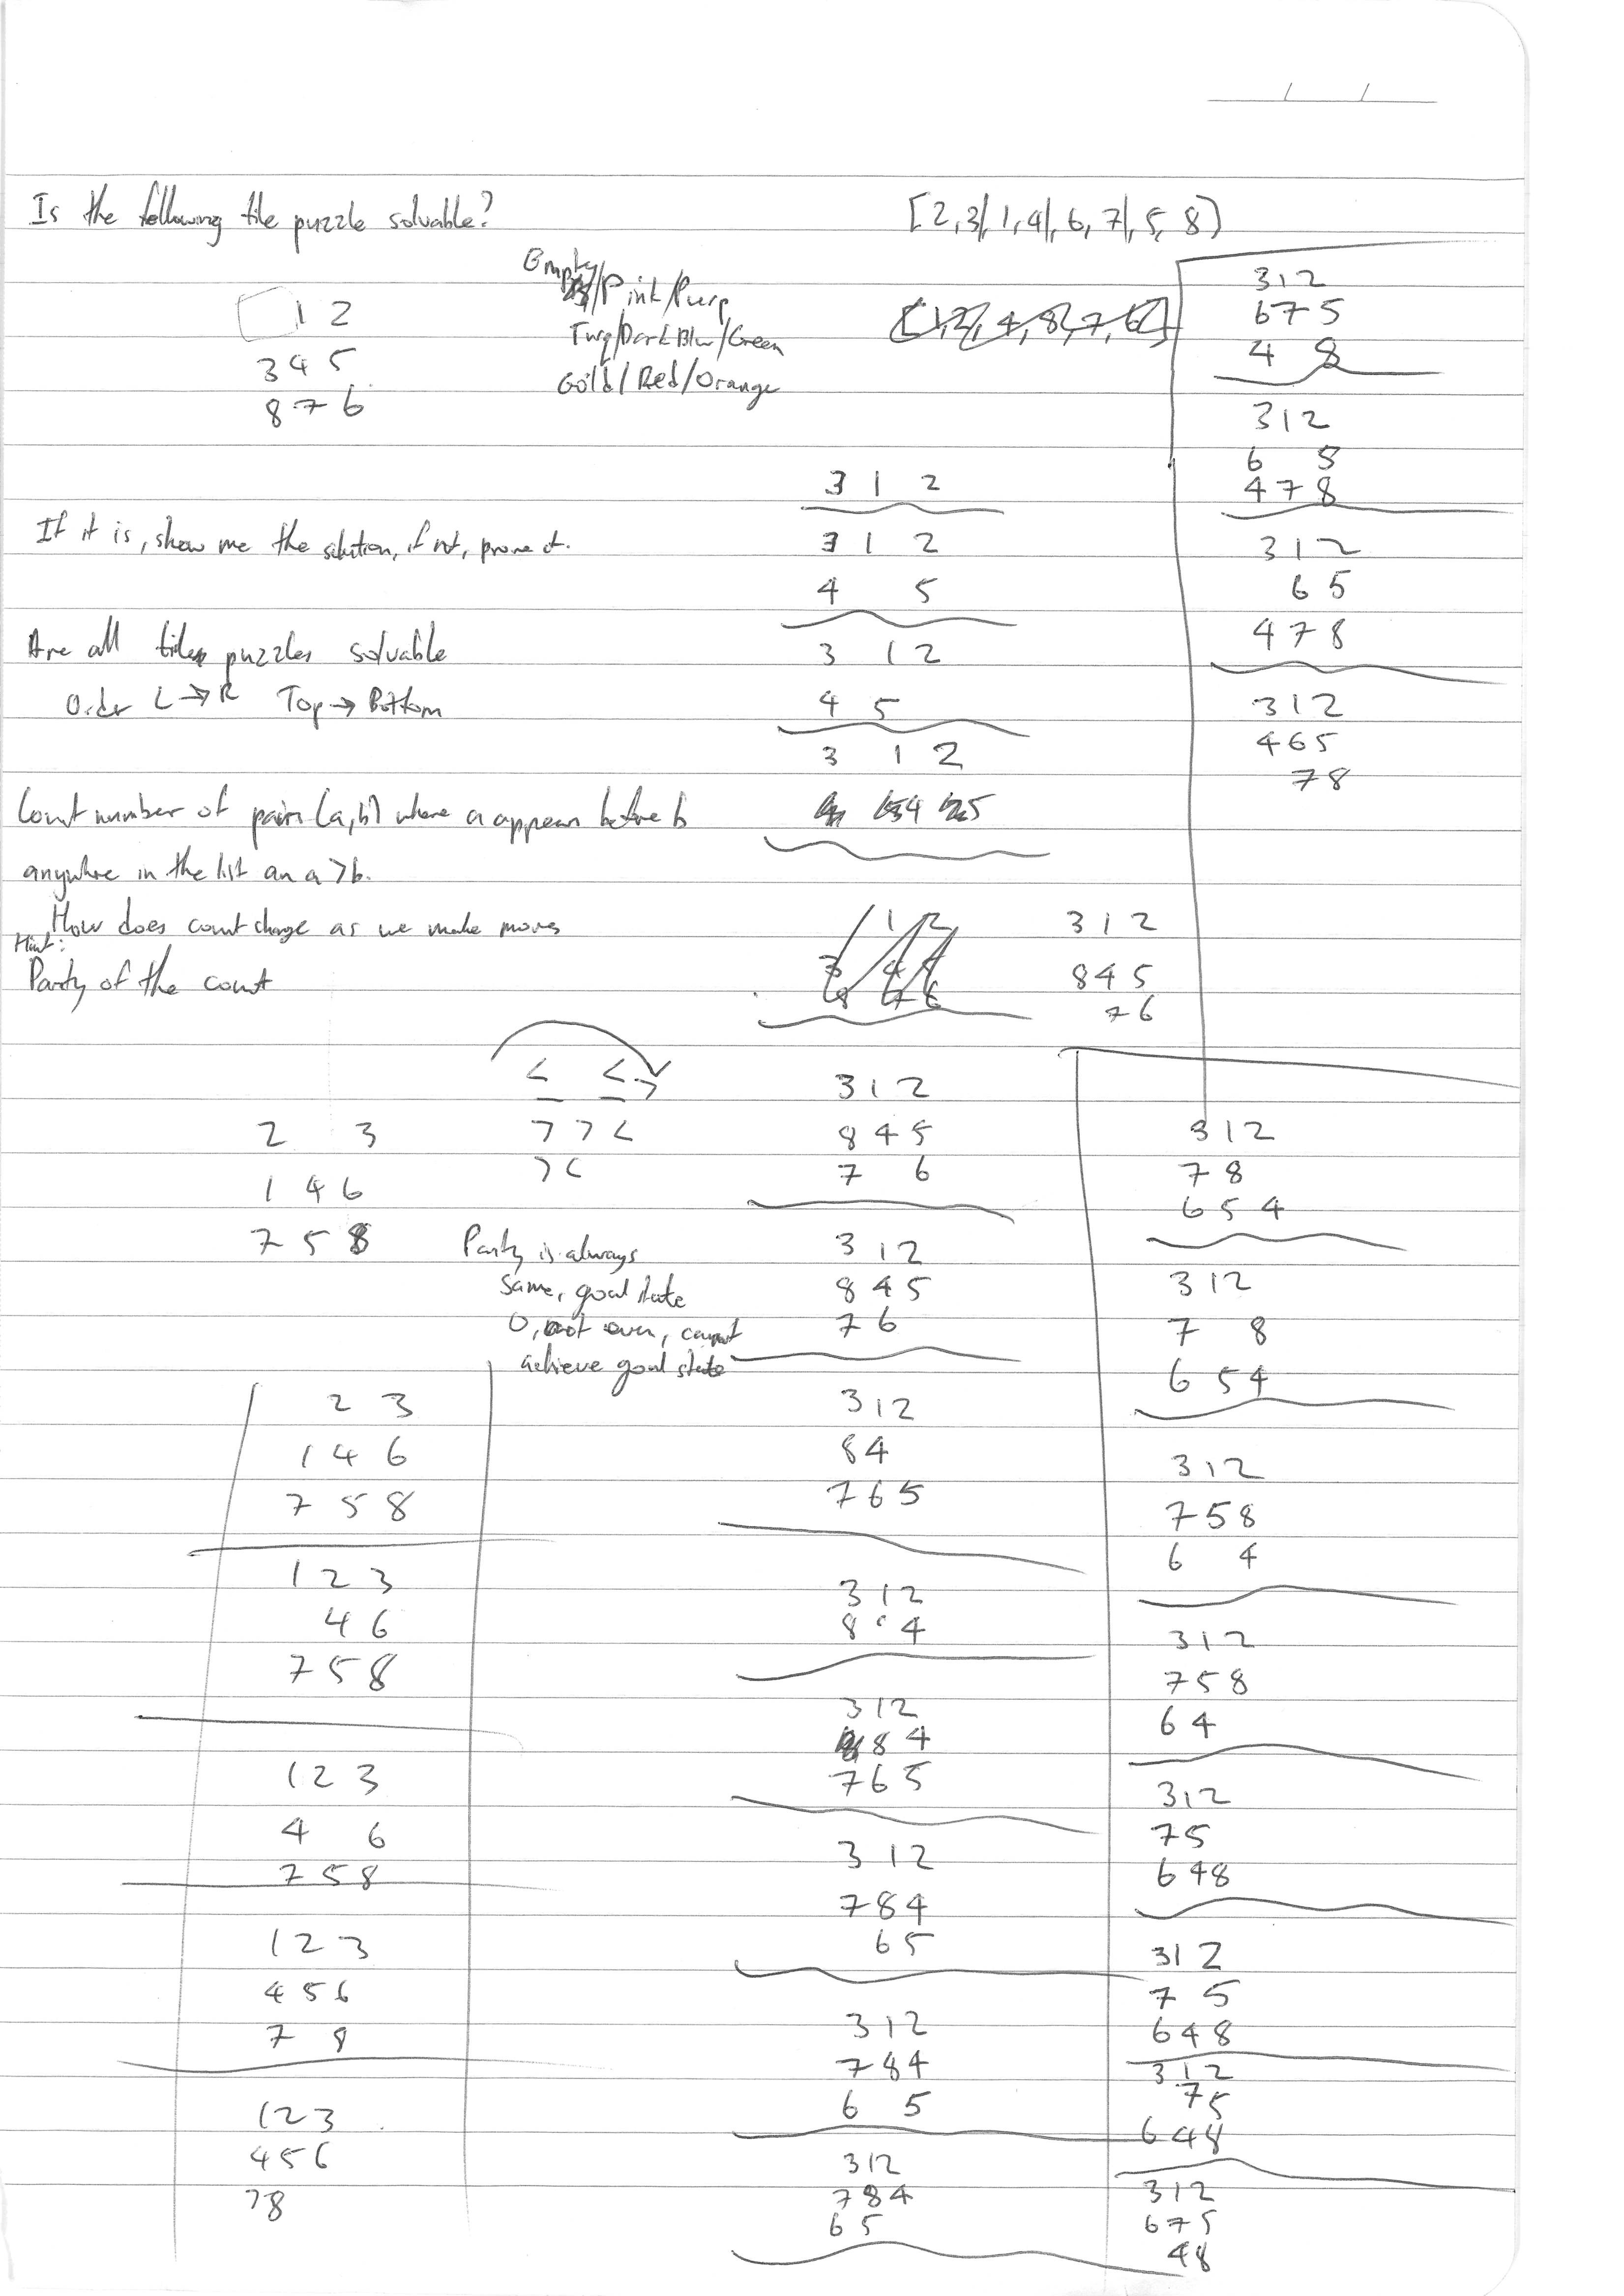 Is the following tile puzzle solvable?
[2,3,1,4,6,7,5,8]
1 2
3 4 5
8 7 6
Empty/Pink/Purp
Turq/Dark Blu/Green
Gold/Red/Orange
If it is, show me the solution, if not, prove it.
Are all tiles puzzles solvable
Order L → R Top → Bottom
Count number of pairs (a,b) where a appears before b
anywhere in the list an a > b.
How does count change as we make moves
Hint:
Parity of the count
2 3
1 4 6
7 5 8
< < >
> > <
> <
Parity is always
same, goal state
0, not even, cannot
achieve goal state
2 3
1 4 6
7 5 8
1 2 3
4 6
7 5 8
1 2 3
4 6
7 5 8
1 2 3
4 5 6
7 8
1 2 3
4 5 6
7 8
3 1 2
3 1 2
4 5
3 1 2
4 5
3 1 2
4 5
3 1 2
8 4 5
7 6
3 1 2
8 4 5
7 6
3 1 2
8 4 5
7 6
3 1 2
8 4
7 6 5
3 1 2
8 4
3 1 2
8 4
7 6 5
3 1 2
7 8 4
6 5
3 1 2
7 8 4
6 5
3 1 2
7 8 4
6 5
3 1 2
7 8
6 5 4
3 1 2
7 8
6 5 4
3 1 2
7 5 8
6 4
3 1 2
7 5 8
6 4
3 1 2
7 5
6 4 8
3 1 2
7 5
6 4 8
3 1 2
7 5
6 4 8
3 1 2
6 7 5
4 8
3 1 2
6 7 5
4 8
3 1 2
6 5
4 7 8
3 1 2
6 5
4 7 8
3 1 2
4 6 5
7 8